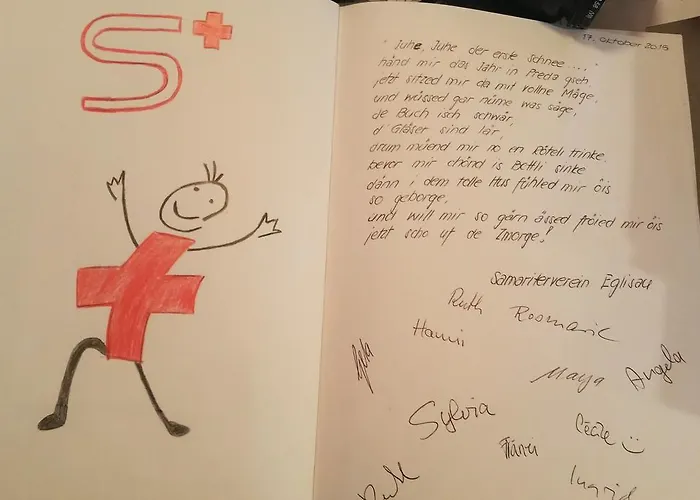 S+
17. Oktober 2015
"Juhe, Juhe der erste Schnee....."
händ mir das Jahr in Preda gseh.
jetzt sitzed mir da mit vollne Mäge,
und wüssed gar nüme was säge,
de Buch isch schwär,
d'Gläser sind lär,
drum müend mir no en Röteli trinke.
bevor mir chönd is Bettli sinke
dänn i dem tolle Hus fühled mir öis
so geborge,
und will mir so gärn ässed fröied mir öis
jetzt scho uf de Zmorge!
Samariterverein Eglisau
Ruth
Rosmarie
Hanni
Maya
Angela
Sylvia
Cécile
Ingrid